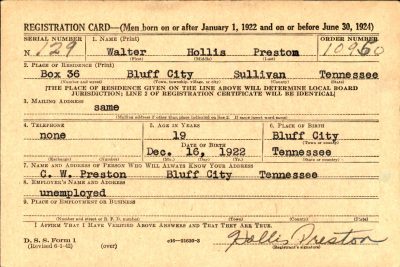 REGISTRATION CARD—(Men born on or after January 1, 1922 and on or before June 30, 1924)
SERIAL NUMBER 1. NAME (Print) ORDER NUMBER
N 129 Walter Hollis Preston 10960
(First) (Middle) (Last)
2. PLACE OF RESIDENCE (Print)
Box 36 Bluff City Sullivan Tennessee
(Number and street) (Town, township, village, or city) (County) (State)
[THE PLACE OF RESIDENCE GIVEN ON THE LINE ABOVE WILL DETERMINE LOCAL BOARD
JURISDICTION; LINE 2 OF REGISTRATION CERTIFICATE WILL BE IDENTICAL]
3. MAILING ADDRESS
same
[Mailing address if other than place indicated on line 2. If same insert word same]
4. TELEPHONE 5. AGE IN YEARS 6. PLACE OF BIRTH
none 19 Bluff City
DATE OF BIRTH (Town or county)
Dec. 16, 1922 Tennessee
(Exchange) (Number) (Mo.) (Day) (Yr.) (State or country)
7. NAME AND ADDRESS OF PERSON WHO WILL ALWAYS KNOW YOUR ADDRESS
C. W. Preston Bluff City Tennessee
8. EMPLOYER'S NAME AND ADDRESS
unemployed
9. PLACE OF EMPLOYMENT OR BUSINESS
(Number and street or R. F. D. number) (Town) (County) (State)
I AFFIRM THAT I HAVE VERIFIED ABOVE ANSWERS AND THAT THEY ARE TRUE.
D. S. S. Form 1
(Revised 6-1-42) (over) Hollis Preston
(Registrant's signature)